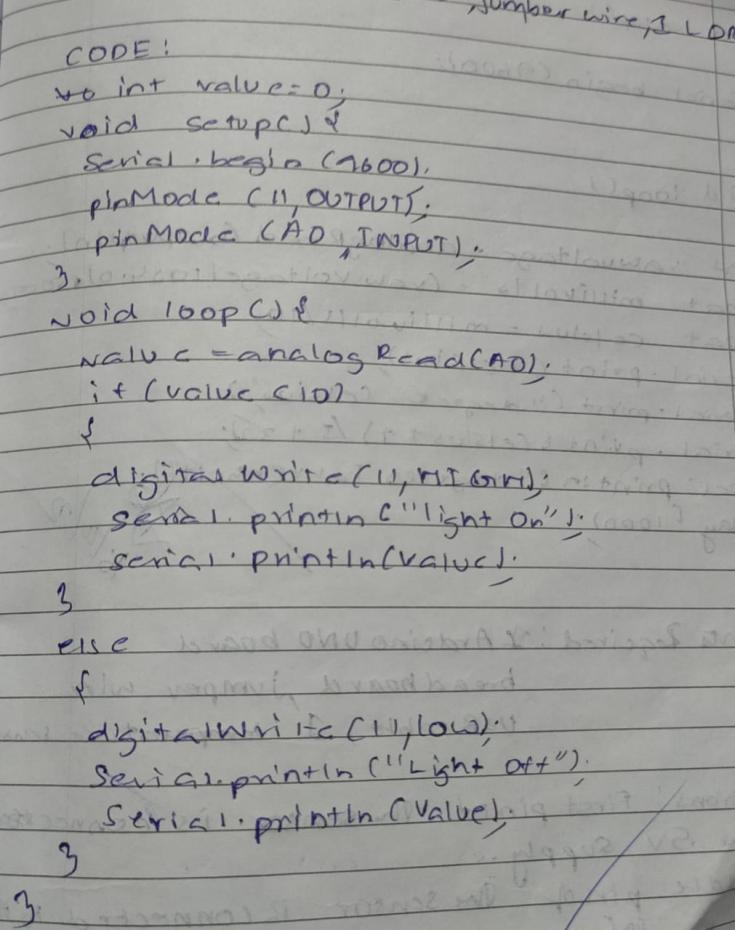 , Jumber wire, 1 LDR
CODE:
int value=0;
void setup() {
Serial.begin (9600);
pinMode (11, OUTPUT);
pinMode (A0, INPUT);
}
void loop() {
value = analogRead(A0);
if (value <10)
{
digitalWrite(11, HIGH);
serial.println ("light on");
serial.println(value);
}
else
{
digitalWrite(11, low);
Serial.println ("Light off");
Serial.println (value);
}
}